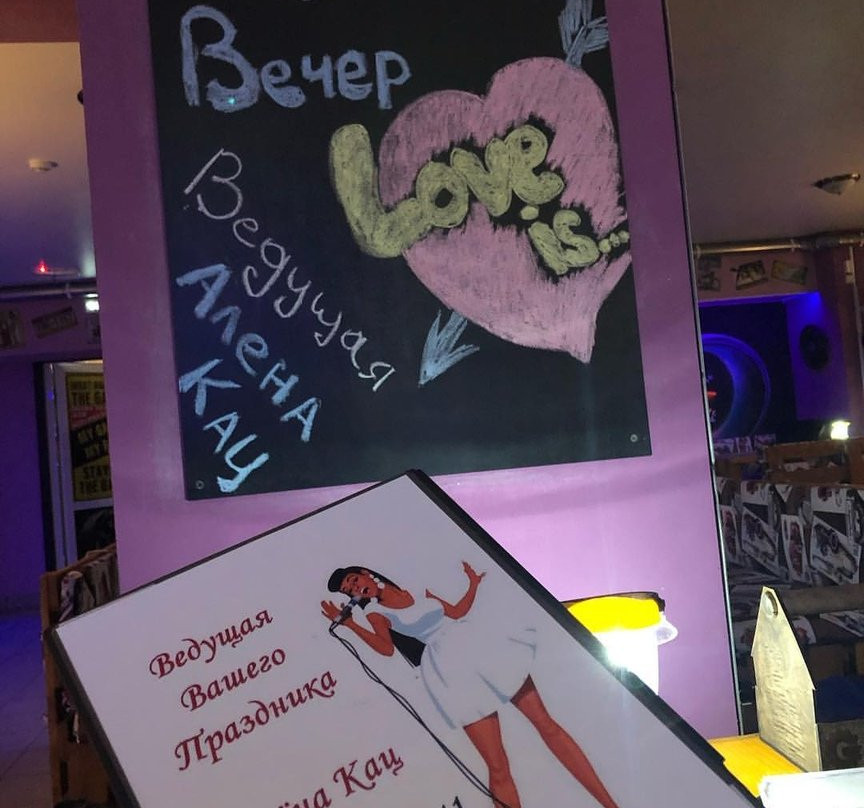 Вечер
Love
is...
Ведущая
Алена
Кац
Ведущая
Вашего
Праздника
Кац